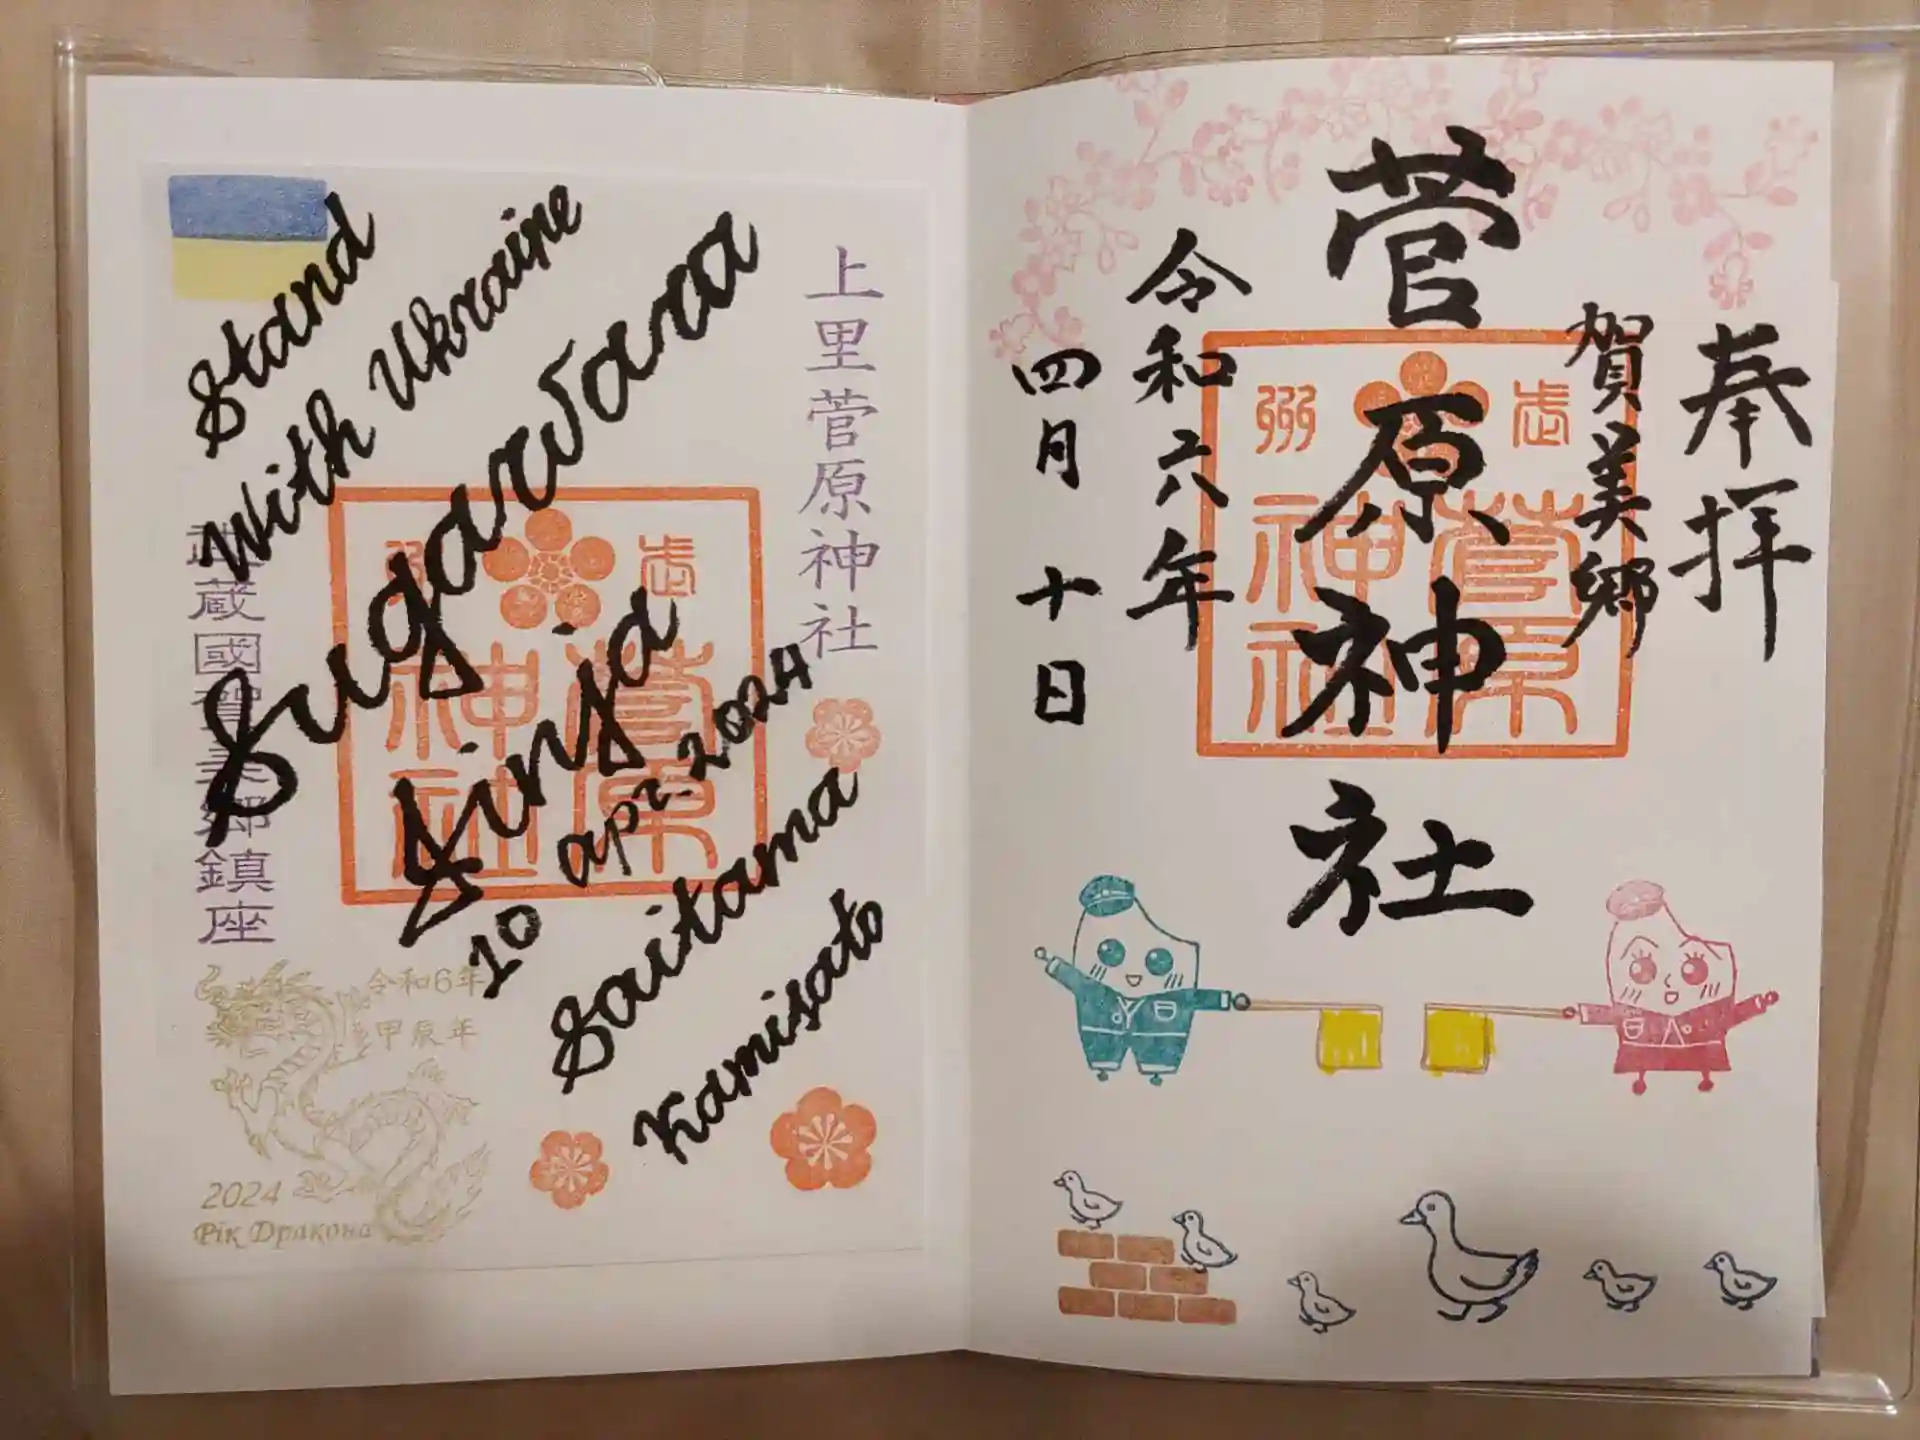 Stand
with Ukraine
Sugawara
Jinja
10 apr. 2024
Saitama
Kamisato
上里菅原神社
武蔵國賀美郷鎮座
令和6年
甲辰年
2024
Рік Дракона
奉拝
賀美郷
菅原神社
令和六年
四月十日
武
州
菅原
神社